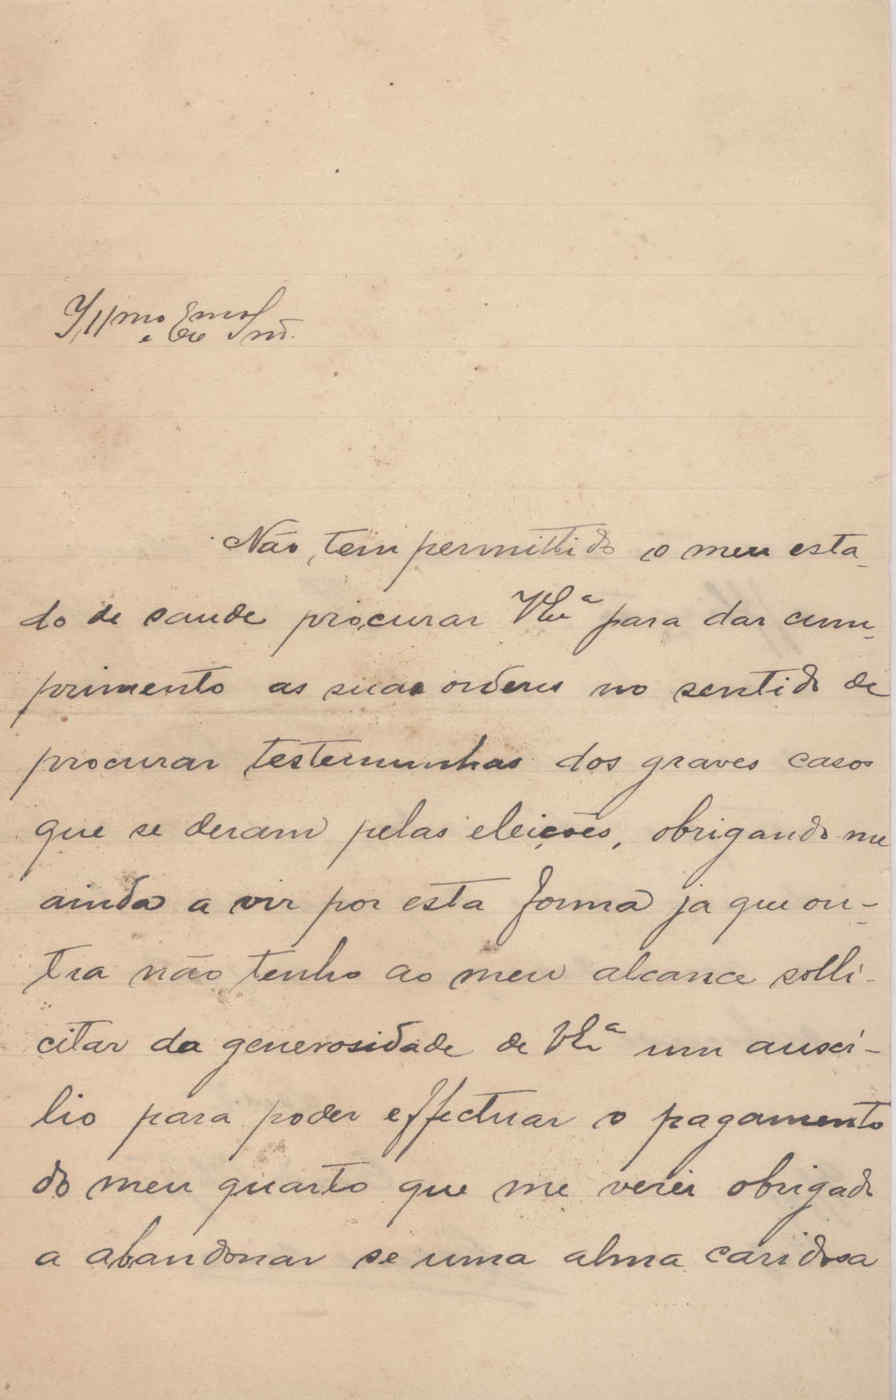 Illmo e Exmo Snr.
Não tem permittido o meu esta-
do de saude procurar VExa para dar cum-
primento as suas ordens no sentido de
procurar testemunhas dos graves casos
que se deram pelas eleições, obrigando me
ainda a vir por esta forma ja que ou-
tra não tenho ao meu alcance solli-
citar da generosidade de VExa um auxi-
lio para poder effectuar o pagamento
do meu quarto que me verei obrigado
a abandonar se uma alma caridosa